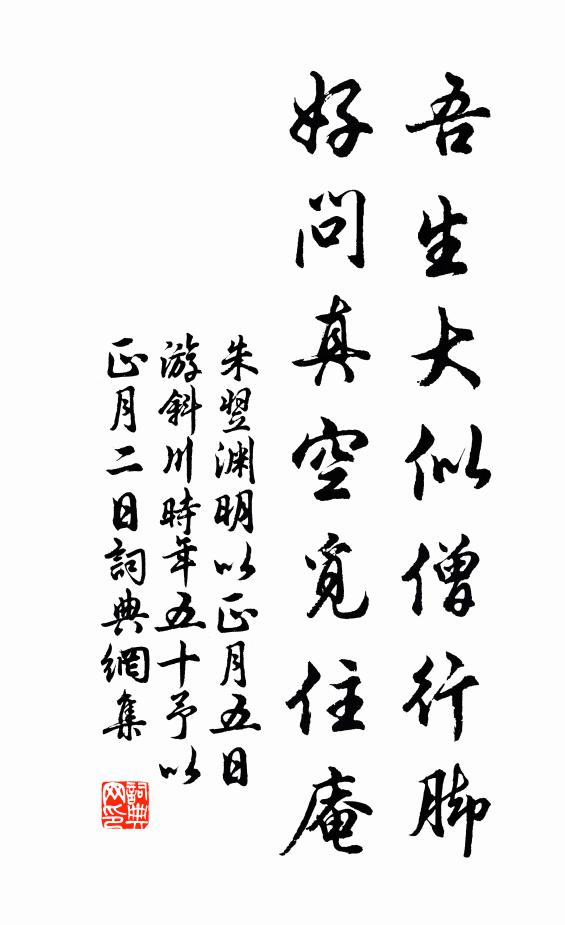 吾生大似僧行脚
好問真空覓住庵
朱翌渊明以正月五日
游斜川時年五十予以
正月二日詞典網集
詞典网印